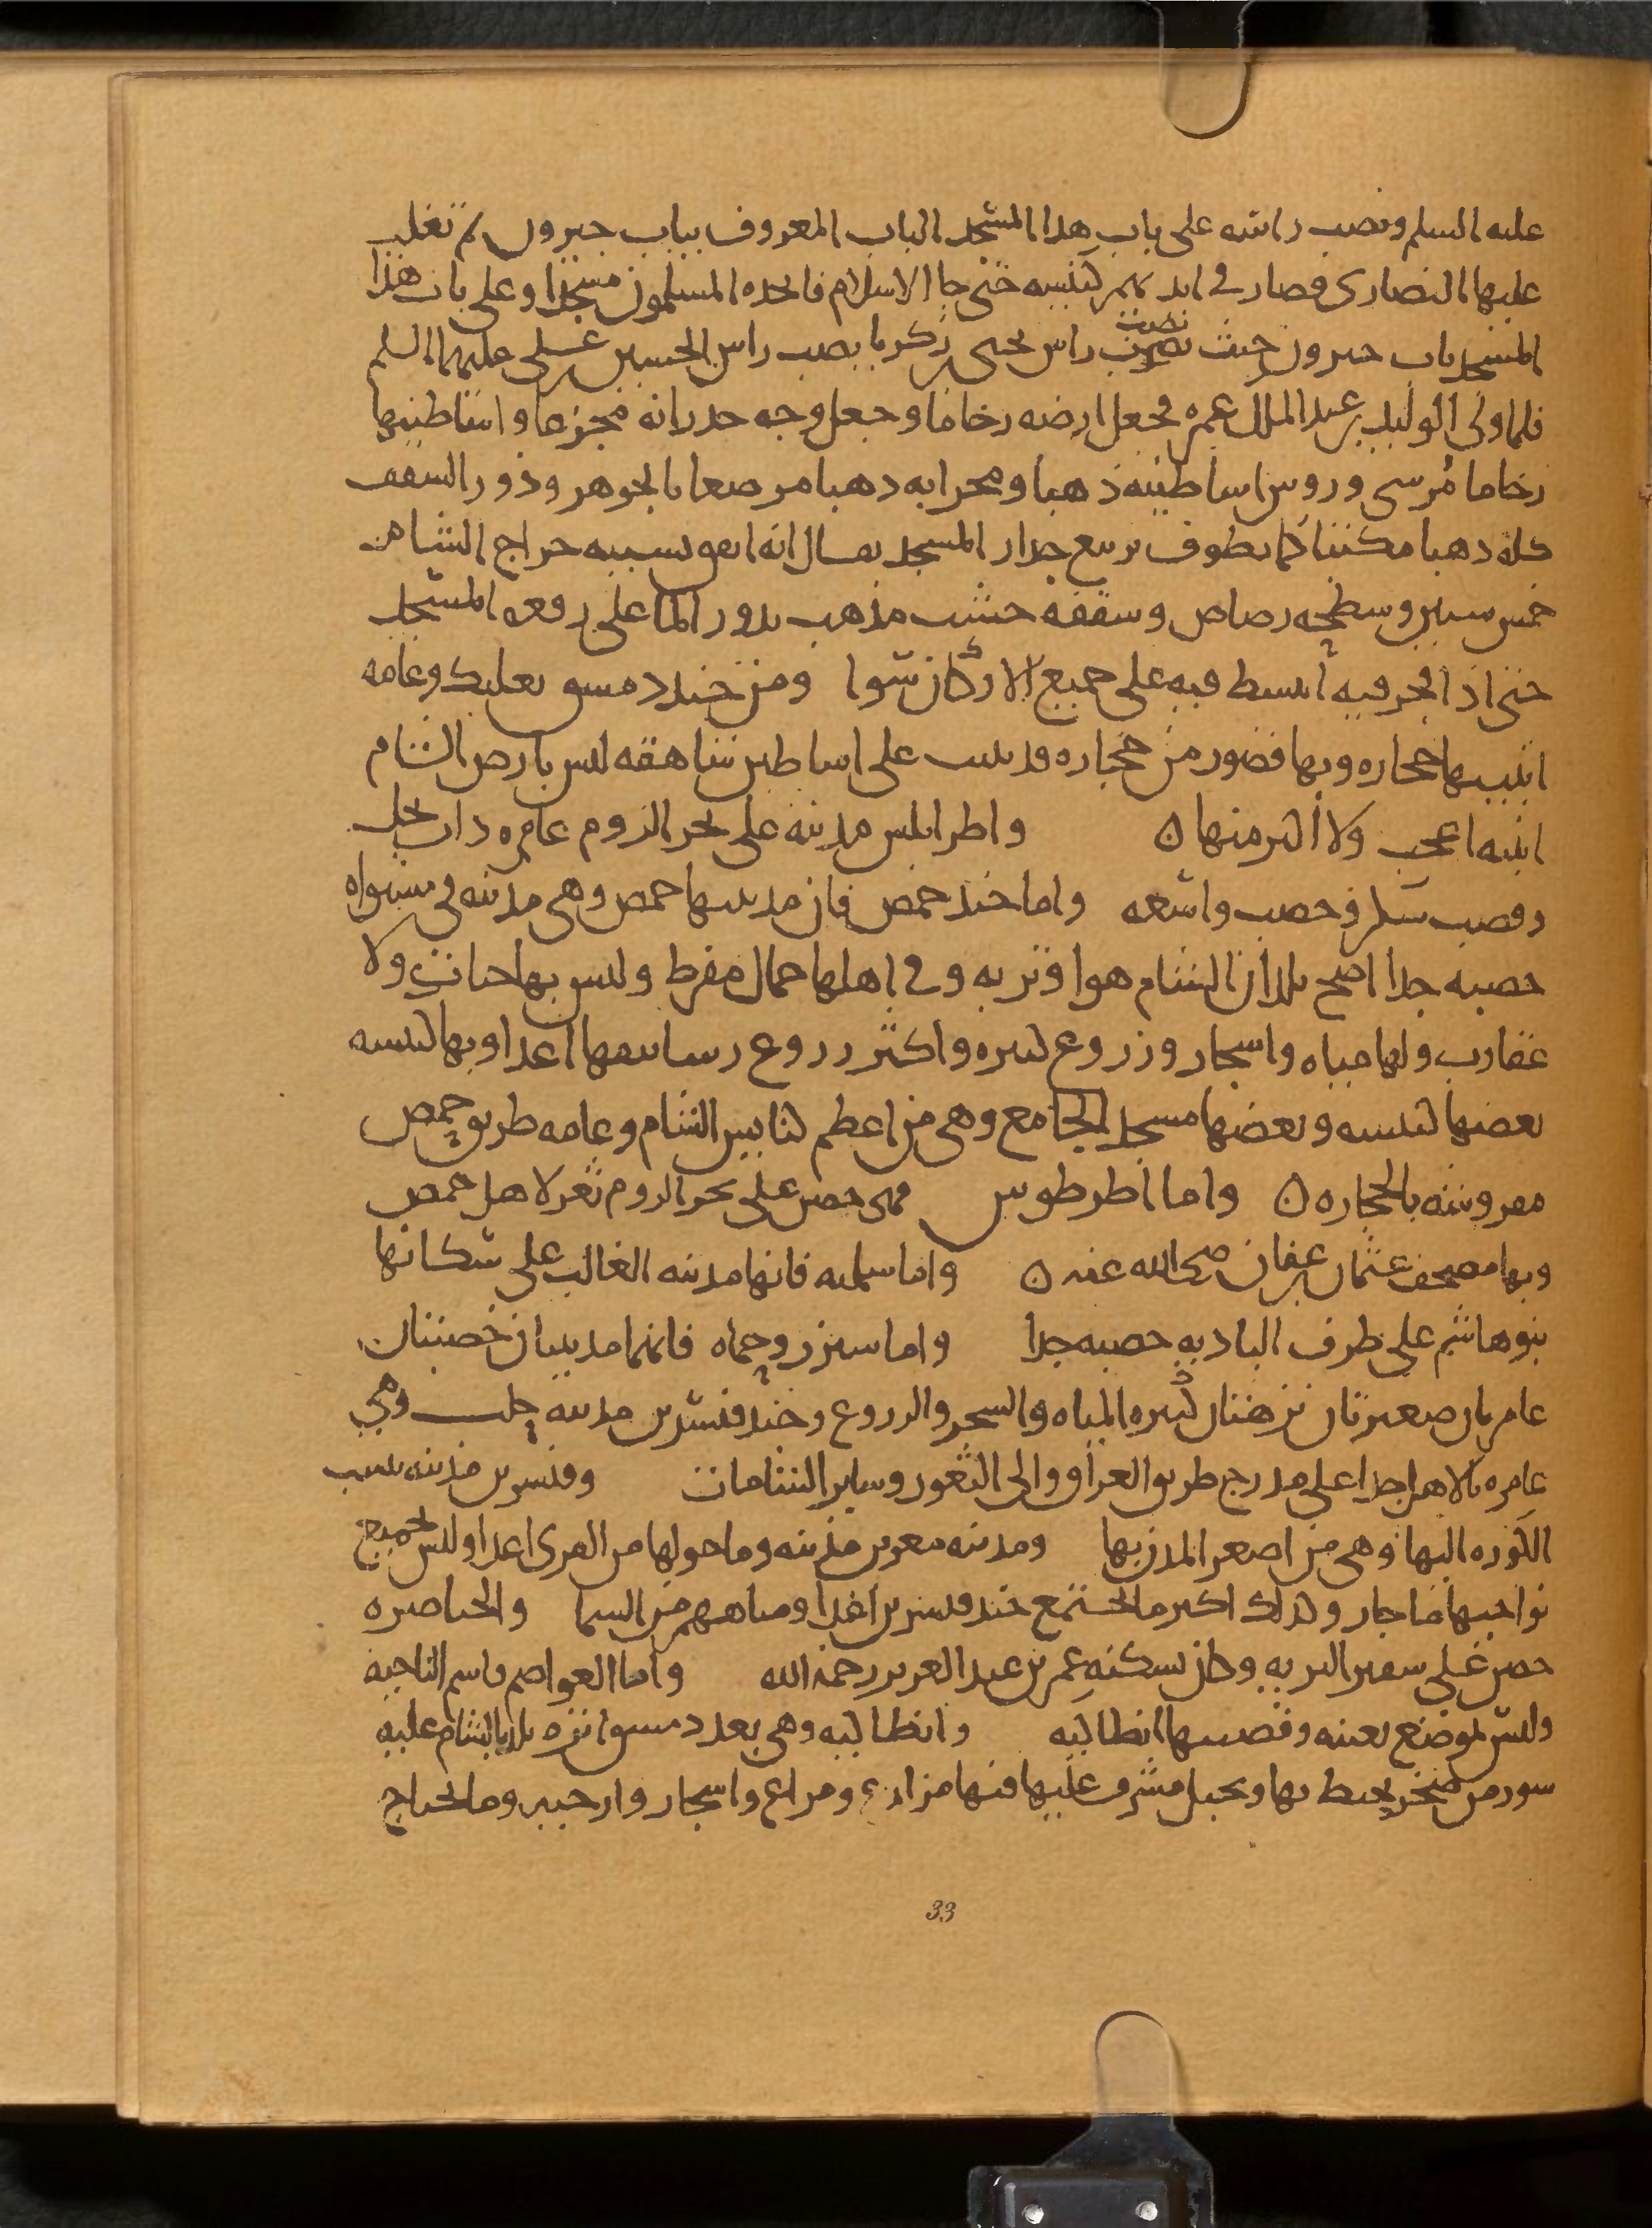 عليه السلم ونصب راسه على باب هذا المسجد الباب المعروف بباب جيرون ثم تغلب
عليها النصارى فصار في ايديهم كنيسه حتى جا الاسلام فاتخذه المسلمون مسجدا وعلى باب هذا
المسجد باب جيرون حيث نصب نصب راس يحيى بن زكريا نصب راس الحسين بن على عليهما السلم
فلما ولى الوليد بن عبد الملك عمره فجعل ارضه رخاما وجعل وجه جدرانه مجزعا واساطينها
رخاما مُوسى وروس اساطينه ذهبا ومحرابه ذهبا مرصعا بالجوهر ودور السقف
كله ذهبا مكتبا كما يطوف بربيع جدار المسجد يقال انه انفق بسببه خراج الشام
خمس سنين وسطحه رصاص وسقفه خشب مذهب يدور الما على رقعه المسجد
حتى اذا فجر فيه انبسط فيه على جميع الاركان سوا ومن جند دمسق بعلبك وعامه
ابنيتها حجاره وبها قصور من حجاره قد بنيت على اساطين شاهقه ليس بارض الشام
ابنيه اعجب ولا اكبر منها ن واطرابلس مدينه على بحر الروم عامره ذات نخل
وقصب سكر وخصب واسعه واما جند حمص فان مدينتها حمص وهي مدينه في مستواه
خصبه جدا اصح بلدان الشام هوا وتربه وفي اهلها جمال مفرط وليس بها حيات ولا
عقارب ولها مياه واشجار وزروع كثيره واكثر زروع رساتيقها اعدا وبها كنيسه
بعضها كنيسه وبعضها مسجد الجامع وهي من اعظم كنايس الشام وعامه طريق حمص
مفروشه بالحجاره ن واما انطرطوس فهى حصن على بحر الروم ثغر لاهل حمص
وبها مصحف عثمان بن عفان رضى الله عنه ن واما سلميه فانها مدينه الغالب على سكانها
بنو هاشم على طرف الباديه خصبه جدا واما سيزر وحماه فانهما مدينتان خصبتان
عامرتان صغيرتان نزهتان كثيره المياه والشجر والزروع وجند قنسرين مدينه حلب وهي
عامره بالاهل جدا على مدرج طريق العراق والى الثغور وساير الشامات وقنسرين مدينه تنسب
الكوره اليها وهي من اصغر المدن بها ومدينه معرين مدينه وما حولها من القرى اعدا وليس بجميع
نواحيها ما جار وكذلك اكثر ما يجتمع جند قنسرين اعدا ومياههم من السما والخناصره
حصن على سفير البريه وكان يسكنه عمر بن عبد العزيز رحمه الله واما العواصم فاسم الناحيه
وليس لموضع بعينه وقصبتها انطاكيه وانطاكيه وهي بعد دمسق انزه بلد بالشام عليه
سور من صخر يحيط بها وبجبل مشرف عليها فيها مزارع ومراع واشجار وارحيه وما يحتاج
33